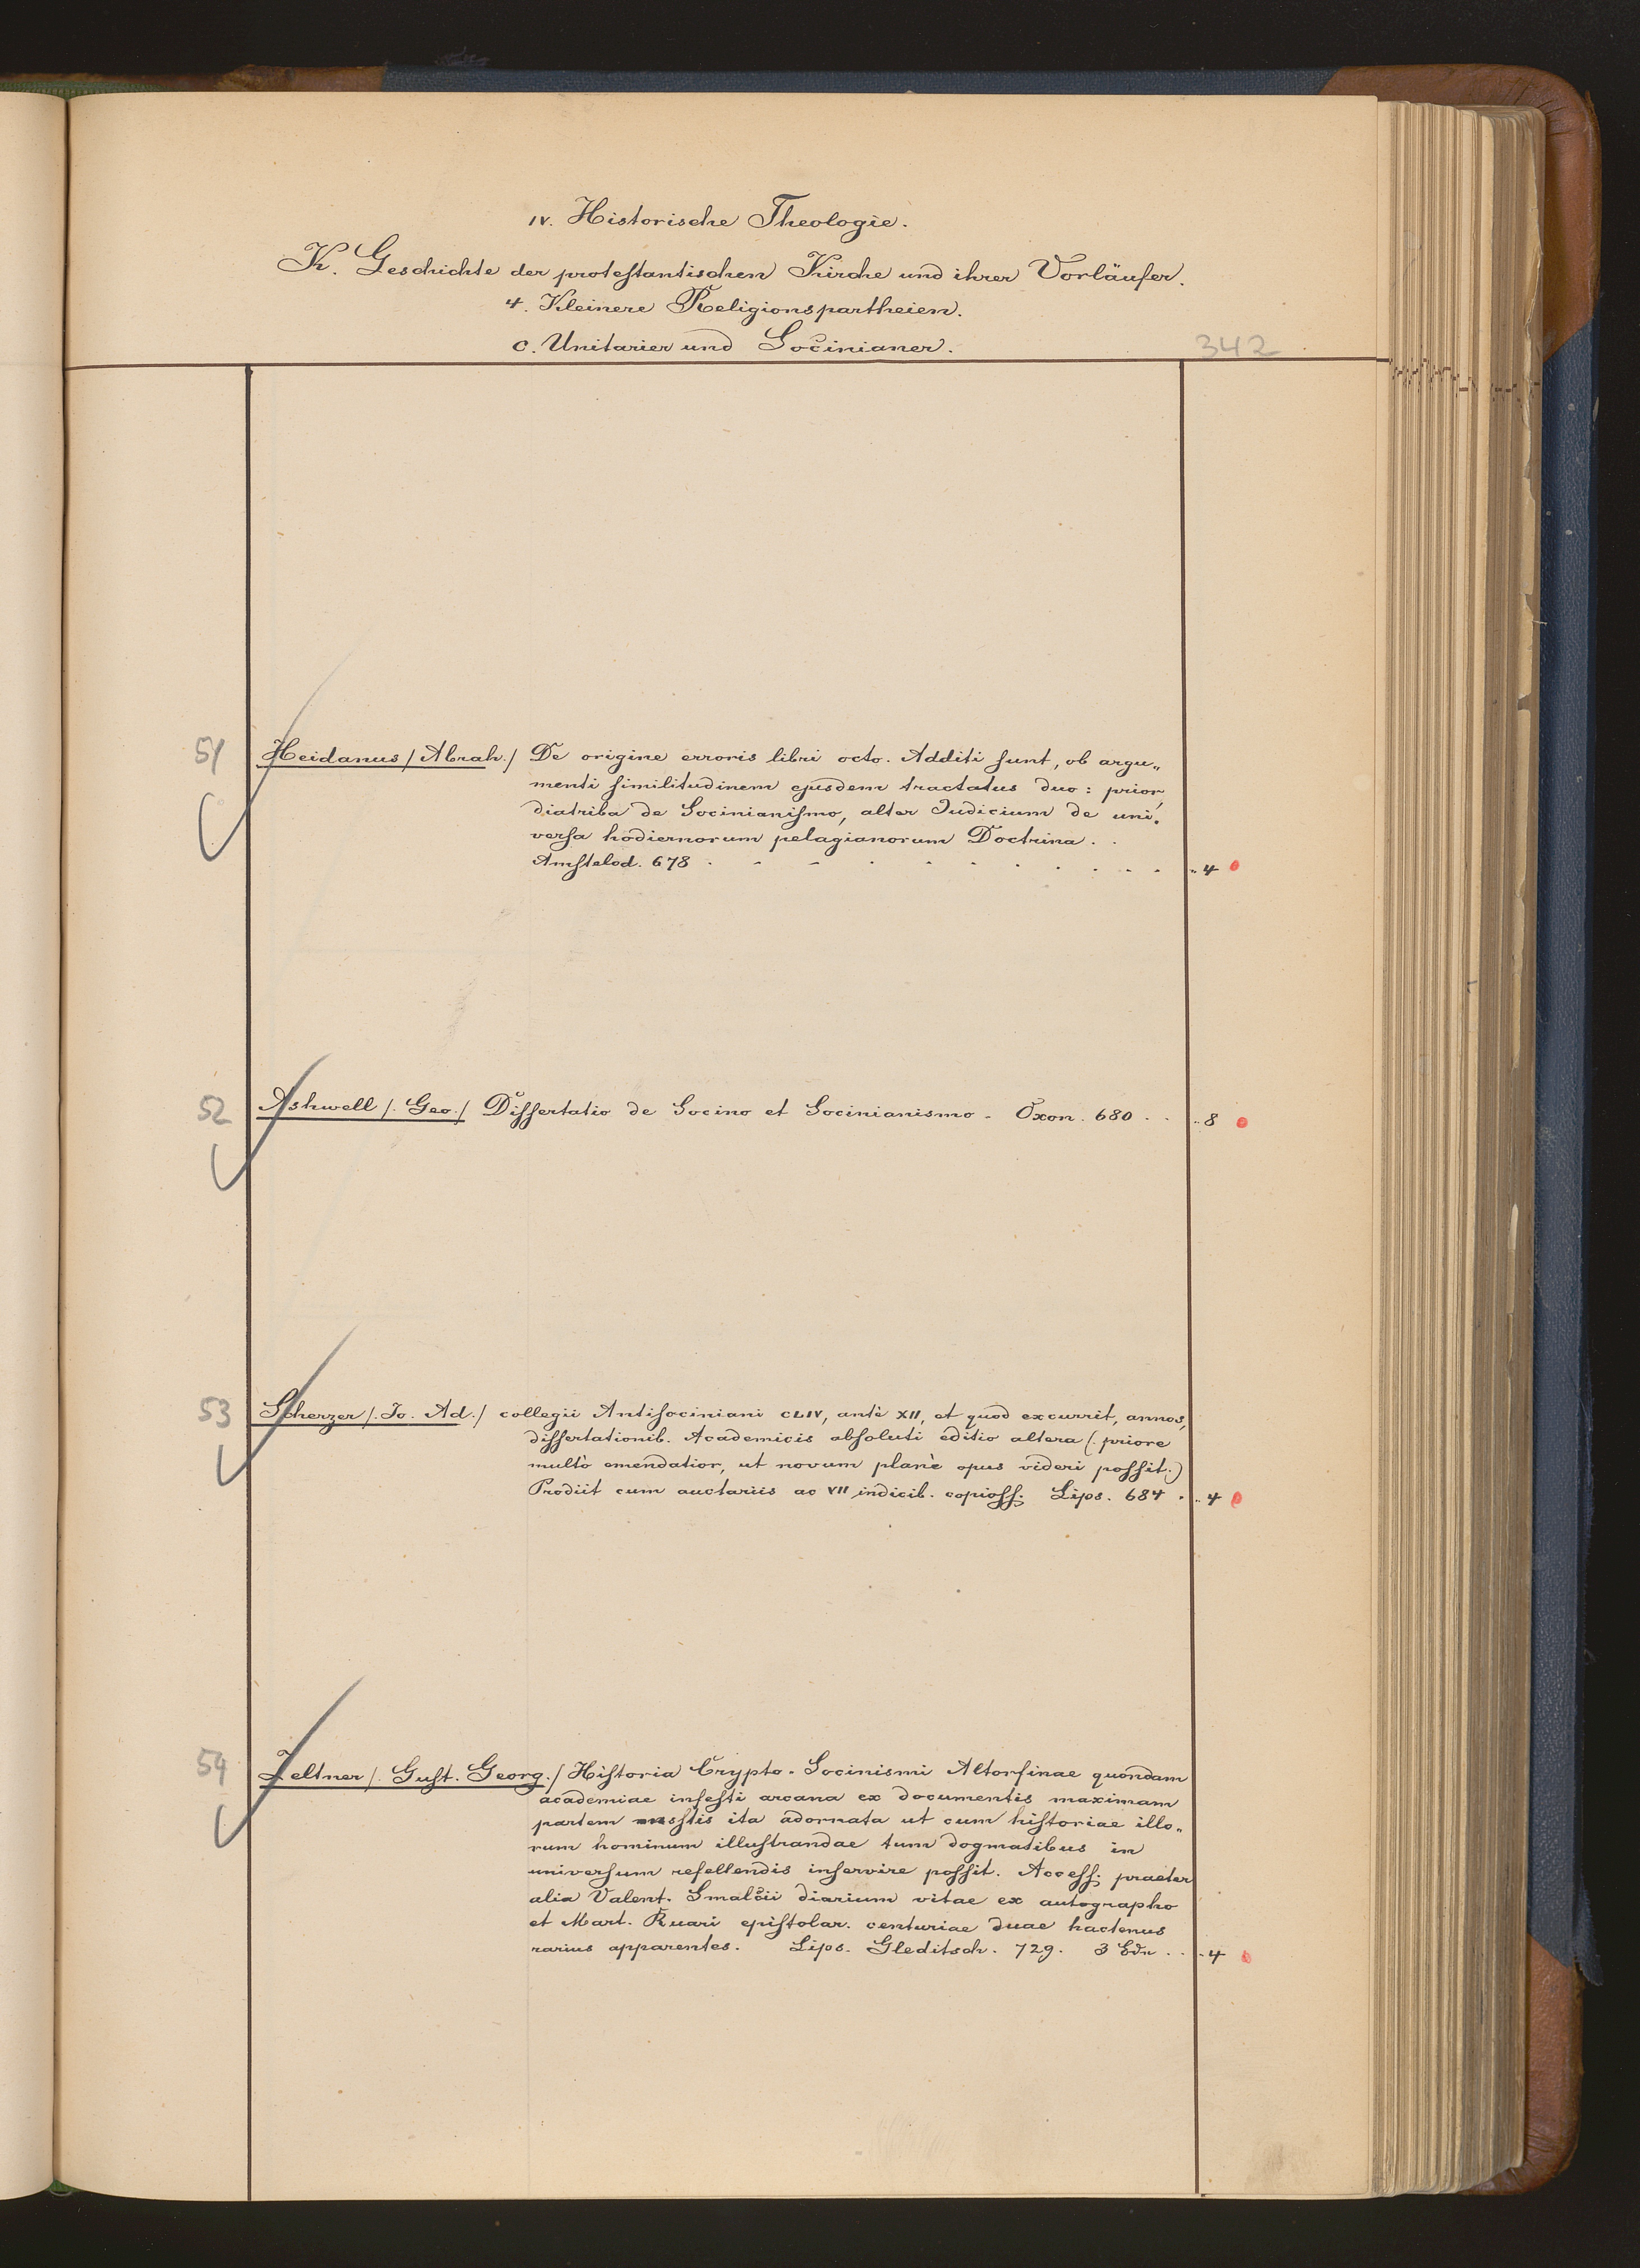 IV. Historische Theologie.
K. Geschichte der protestantischen Kirche und ihrer Vorläufer.
4. Kleinere Religionspartheien.
c. Unitarier und Socinianer.
342
51 Heidanus /Abrah./ De origine erroris libri octo. Additi sunt, ob argu„
menti similitudinem ejusdem tractatus duo: prior,
diatriba de Socinianismo, alter Judicium de uni„
versa hodiernorum pelagianorum Doctrina . .
Amstelod. 678 . - - . . . . . . . . „ 4
52 Ashwell /. Geo./ Dissertatio de Socino et Socinianismo. Oxon. 680 . . „ 8
53 Scherzer /. Jo. Ad./ collegii Antisociniani CLIV, antè XII, et quod excurrit, annos,
dissertationib. Academicis absoluti editio altera (. priore
multò emendatior, ut novum planè opus videri possit.)
Prodiit cum auctariis ac VII indicib. copioss. Lips. 684 . „ 4
54 Zeltner /. Gust. Georg./ Historia Crypto-Socinismi Altorfinae quondam
academiae infesti arcana ex documentis maximam
partem msstis ita adornata ut cum historiae illo„
rum hominum illustrandae tum dogmatibus in
universum refellendis inservire possit. Access. praeter
alia Valent. Smalcii diarium vitae ex autographo
et Mart. Ruari epistolar. centuriae duae hactenus
rarius apparentes. Lips. Gleditsch. 729. 3 Bde . . „ 4